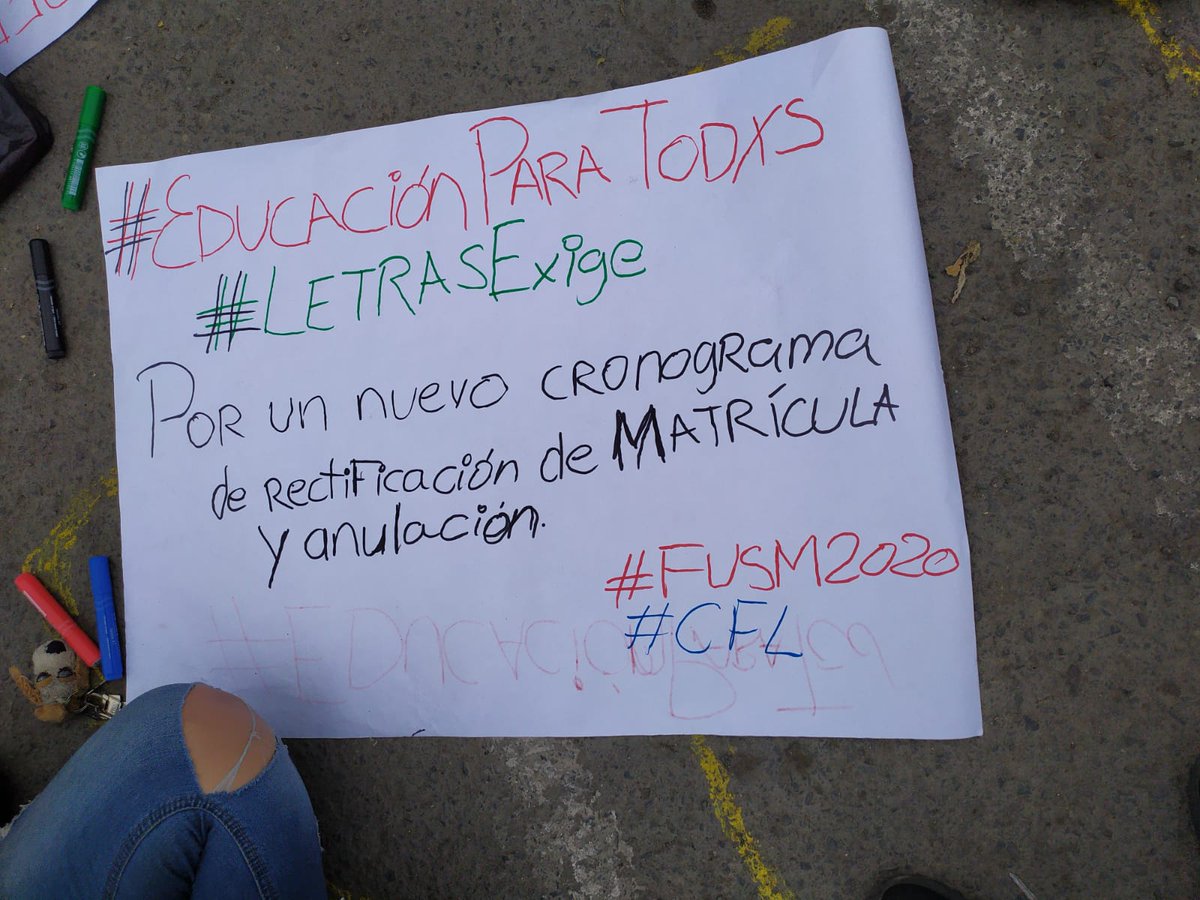 #EDUCACIÓNPARATODXS
#LETRASExige
POR un nuevo CRONOGRAMA
de RectiFicación de MATRÍCULA
Y anulación.
#FUSM2020
#CFL